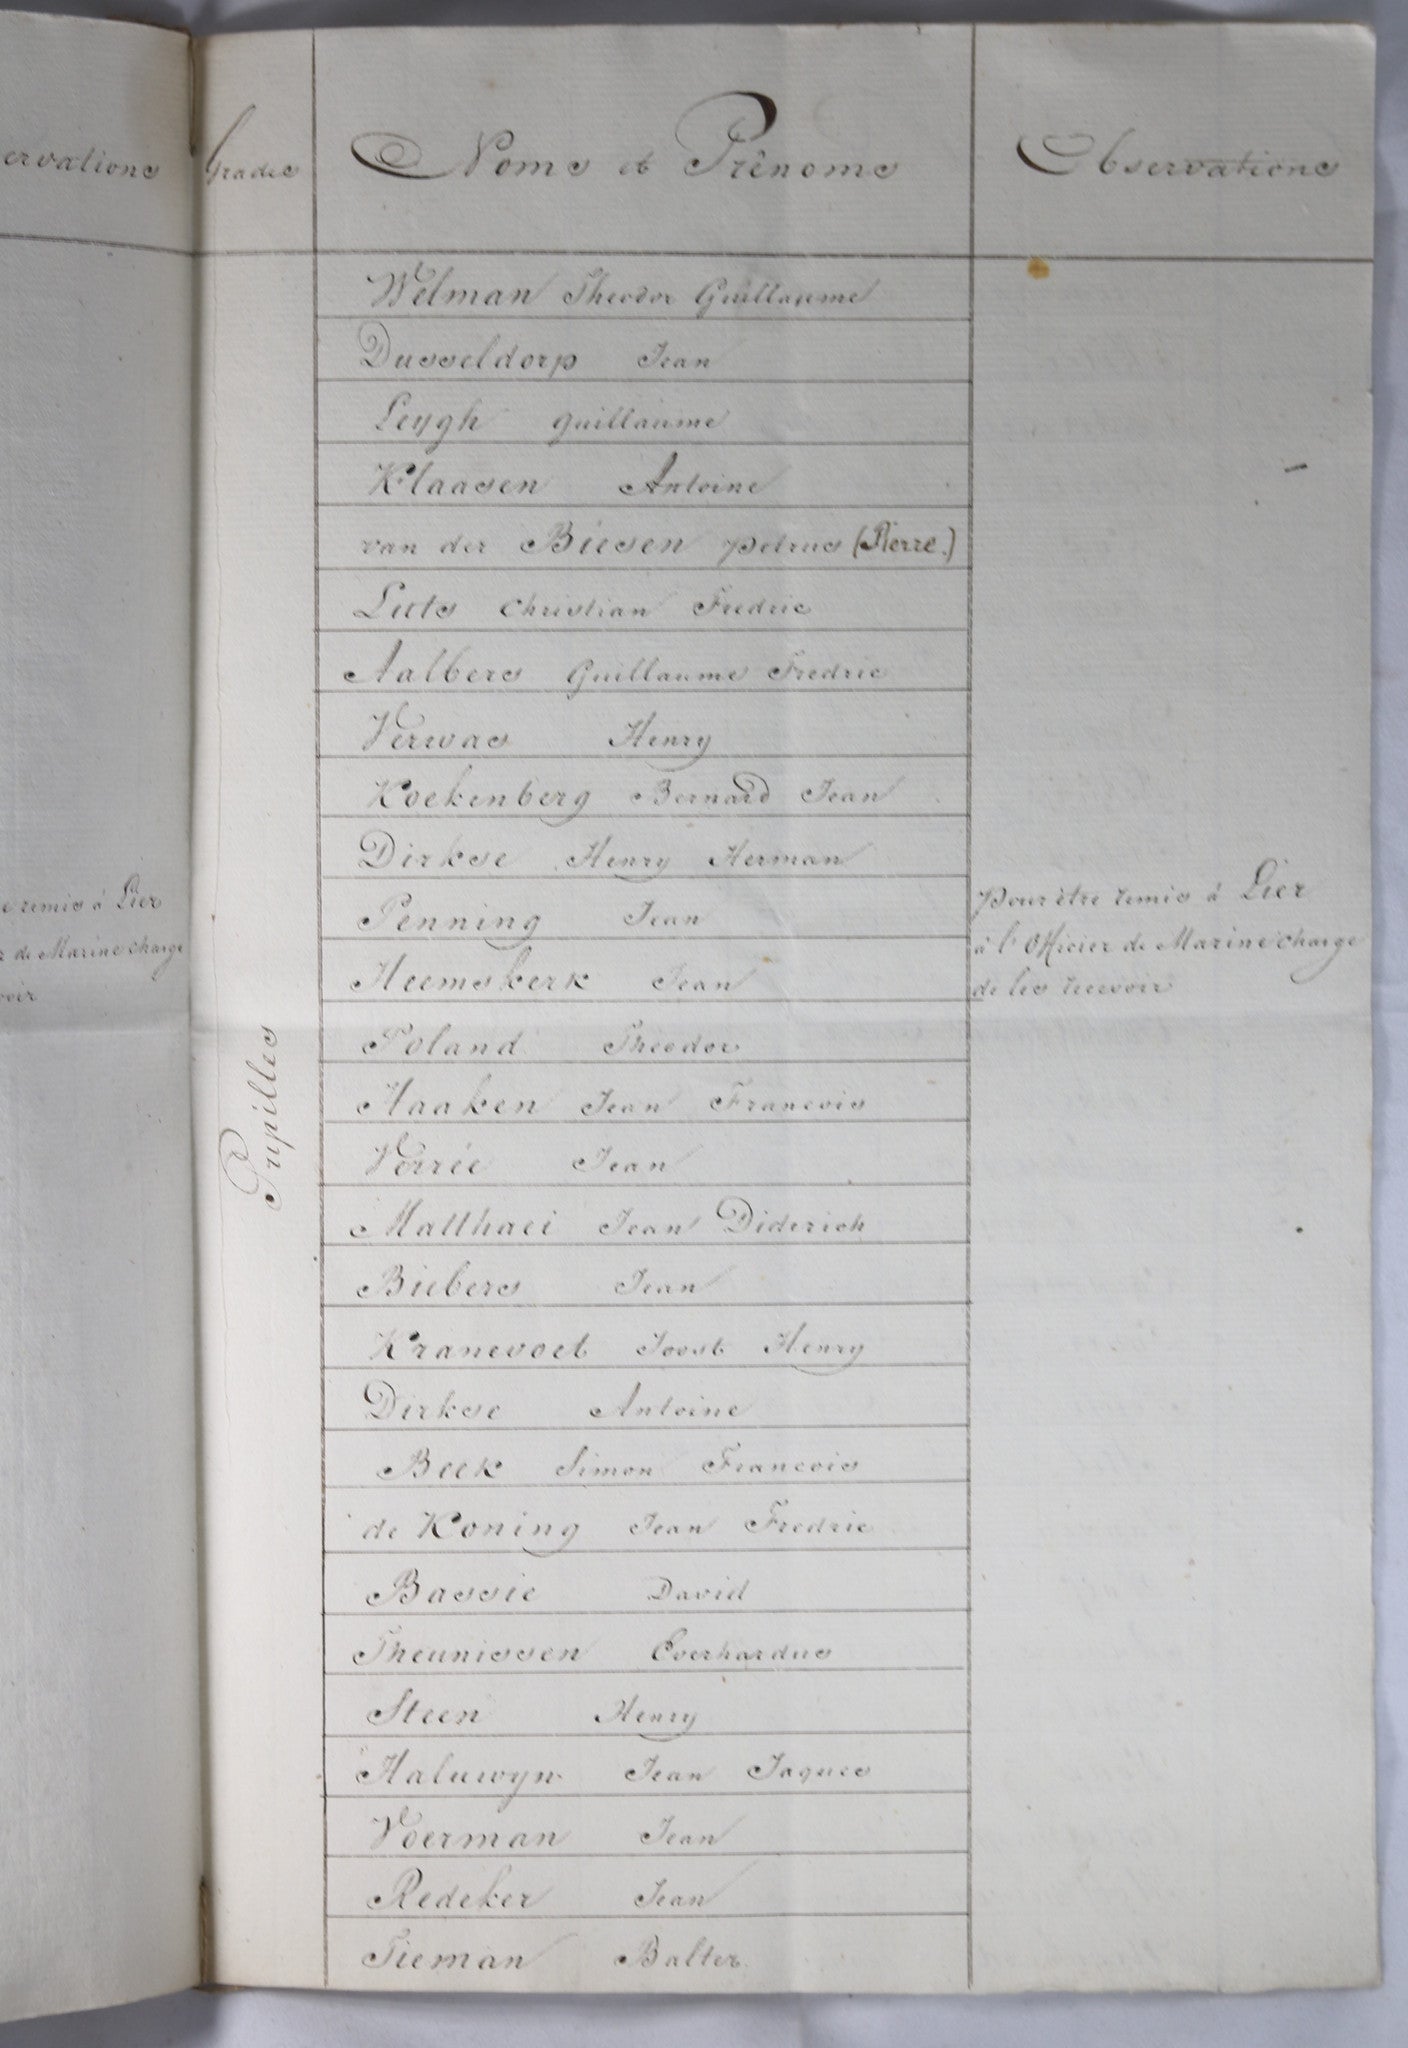 ervations
e remis à Lier
r de Marine charge
voir
Grades
Noms et Prênoms
Observations
Pupilles
Welman Theodor Guillaume
Dusseldorp Jean
Leygh guillaume
Klaasen Antoine
van der Biesen petrus (Pierre.)
Luts Christian Fredric
Aalbers Guillaume Fredric
Verwas Henry
Koekenberg Bernard Jean
Dirkse Henry Herman
Penning Jean
Heemskerk Jean
Poland Theodor
Haaken Jean Francois
Verrée Jean
Matthaei Jean Diderich
Biebers Jean
Kranevoet Joost Henry
Dirkse Antoine
Beek Simon Francois
de Koning Jean Fredric
Bassie David
Theunissen Everhardus
Steen Henry
Haluwyn Jean Jaques
Voerman Jean
Redeker Jean
Tieman Balter
pour être remis à Lier
à l'Officier de Marine charge
de les recevoir